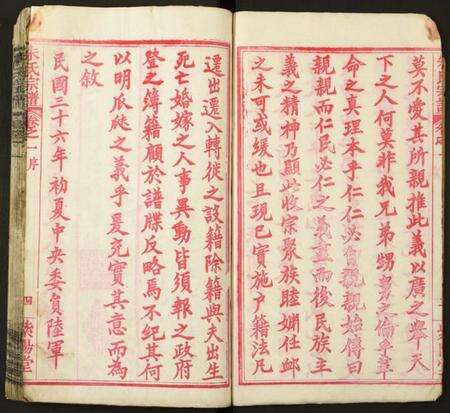 莫不愛其所親推此義以廣之舉天
下之人何莫非我兄弟甥舅之倫乎革
命之真理本乎仁仁必自親親始傳曰
親親而仁民必仁之義盡而後民族主
義之精神乃顯此收宗聚族睦婣任卹
之未可或緩也且現已實施戶籍法凡
遷出遷入轉徙之設籍除籍與夫出生
死亡婚嫁之人事異動皆須報之政府
登之簿籍顧於譜牒反略焉不紀其何
以明瓜瓞之義乎爰充實其意而為
之敘
民國三十六年初夏中央委員陸軍
朱氏宗譜
卷之一序
四
紫陽堂